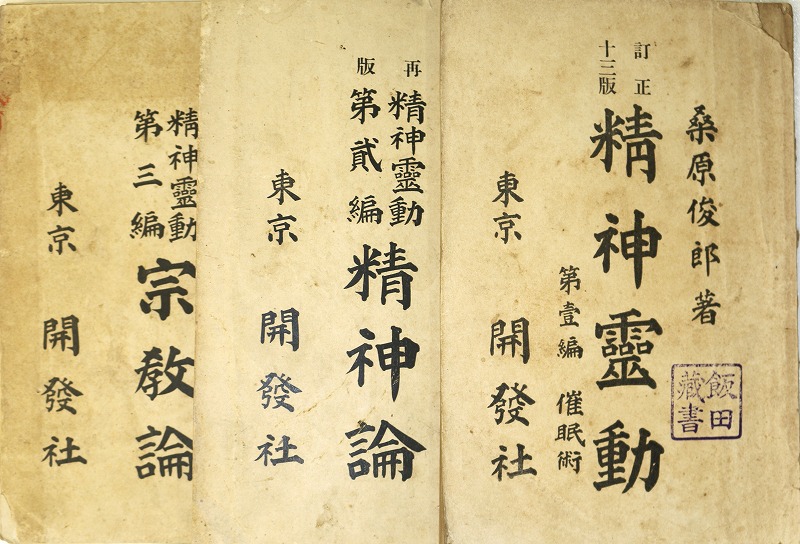 桑原俊郎著
訂正
十三版
精神靈動
第壹編 催眠術
東京 開發社
飯田
藏書
再版
精神靈動
第貳編
精神論
東京 開發社
精神靈動
第三編
宗教論
東京 開發社